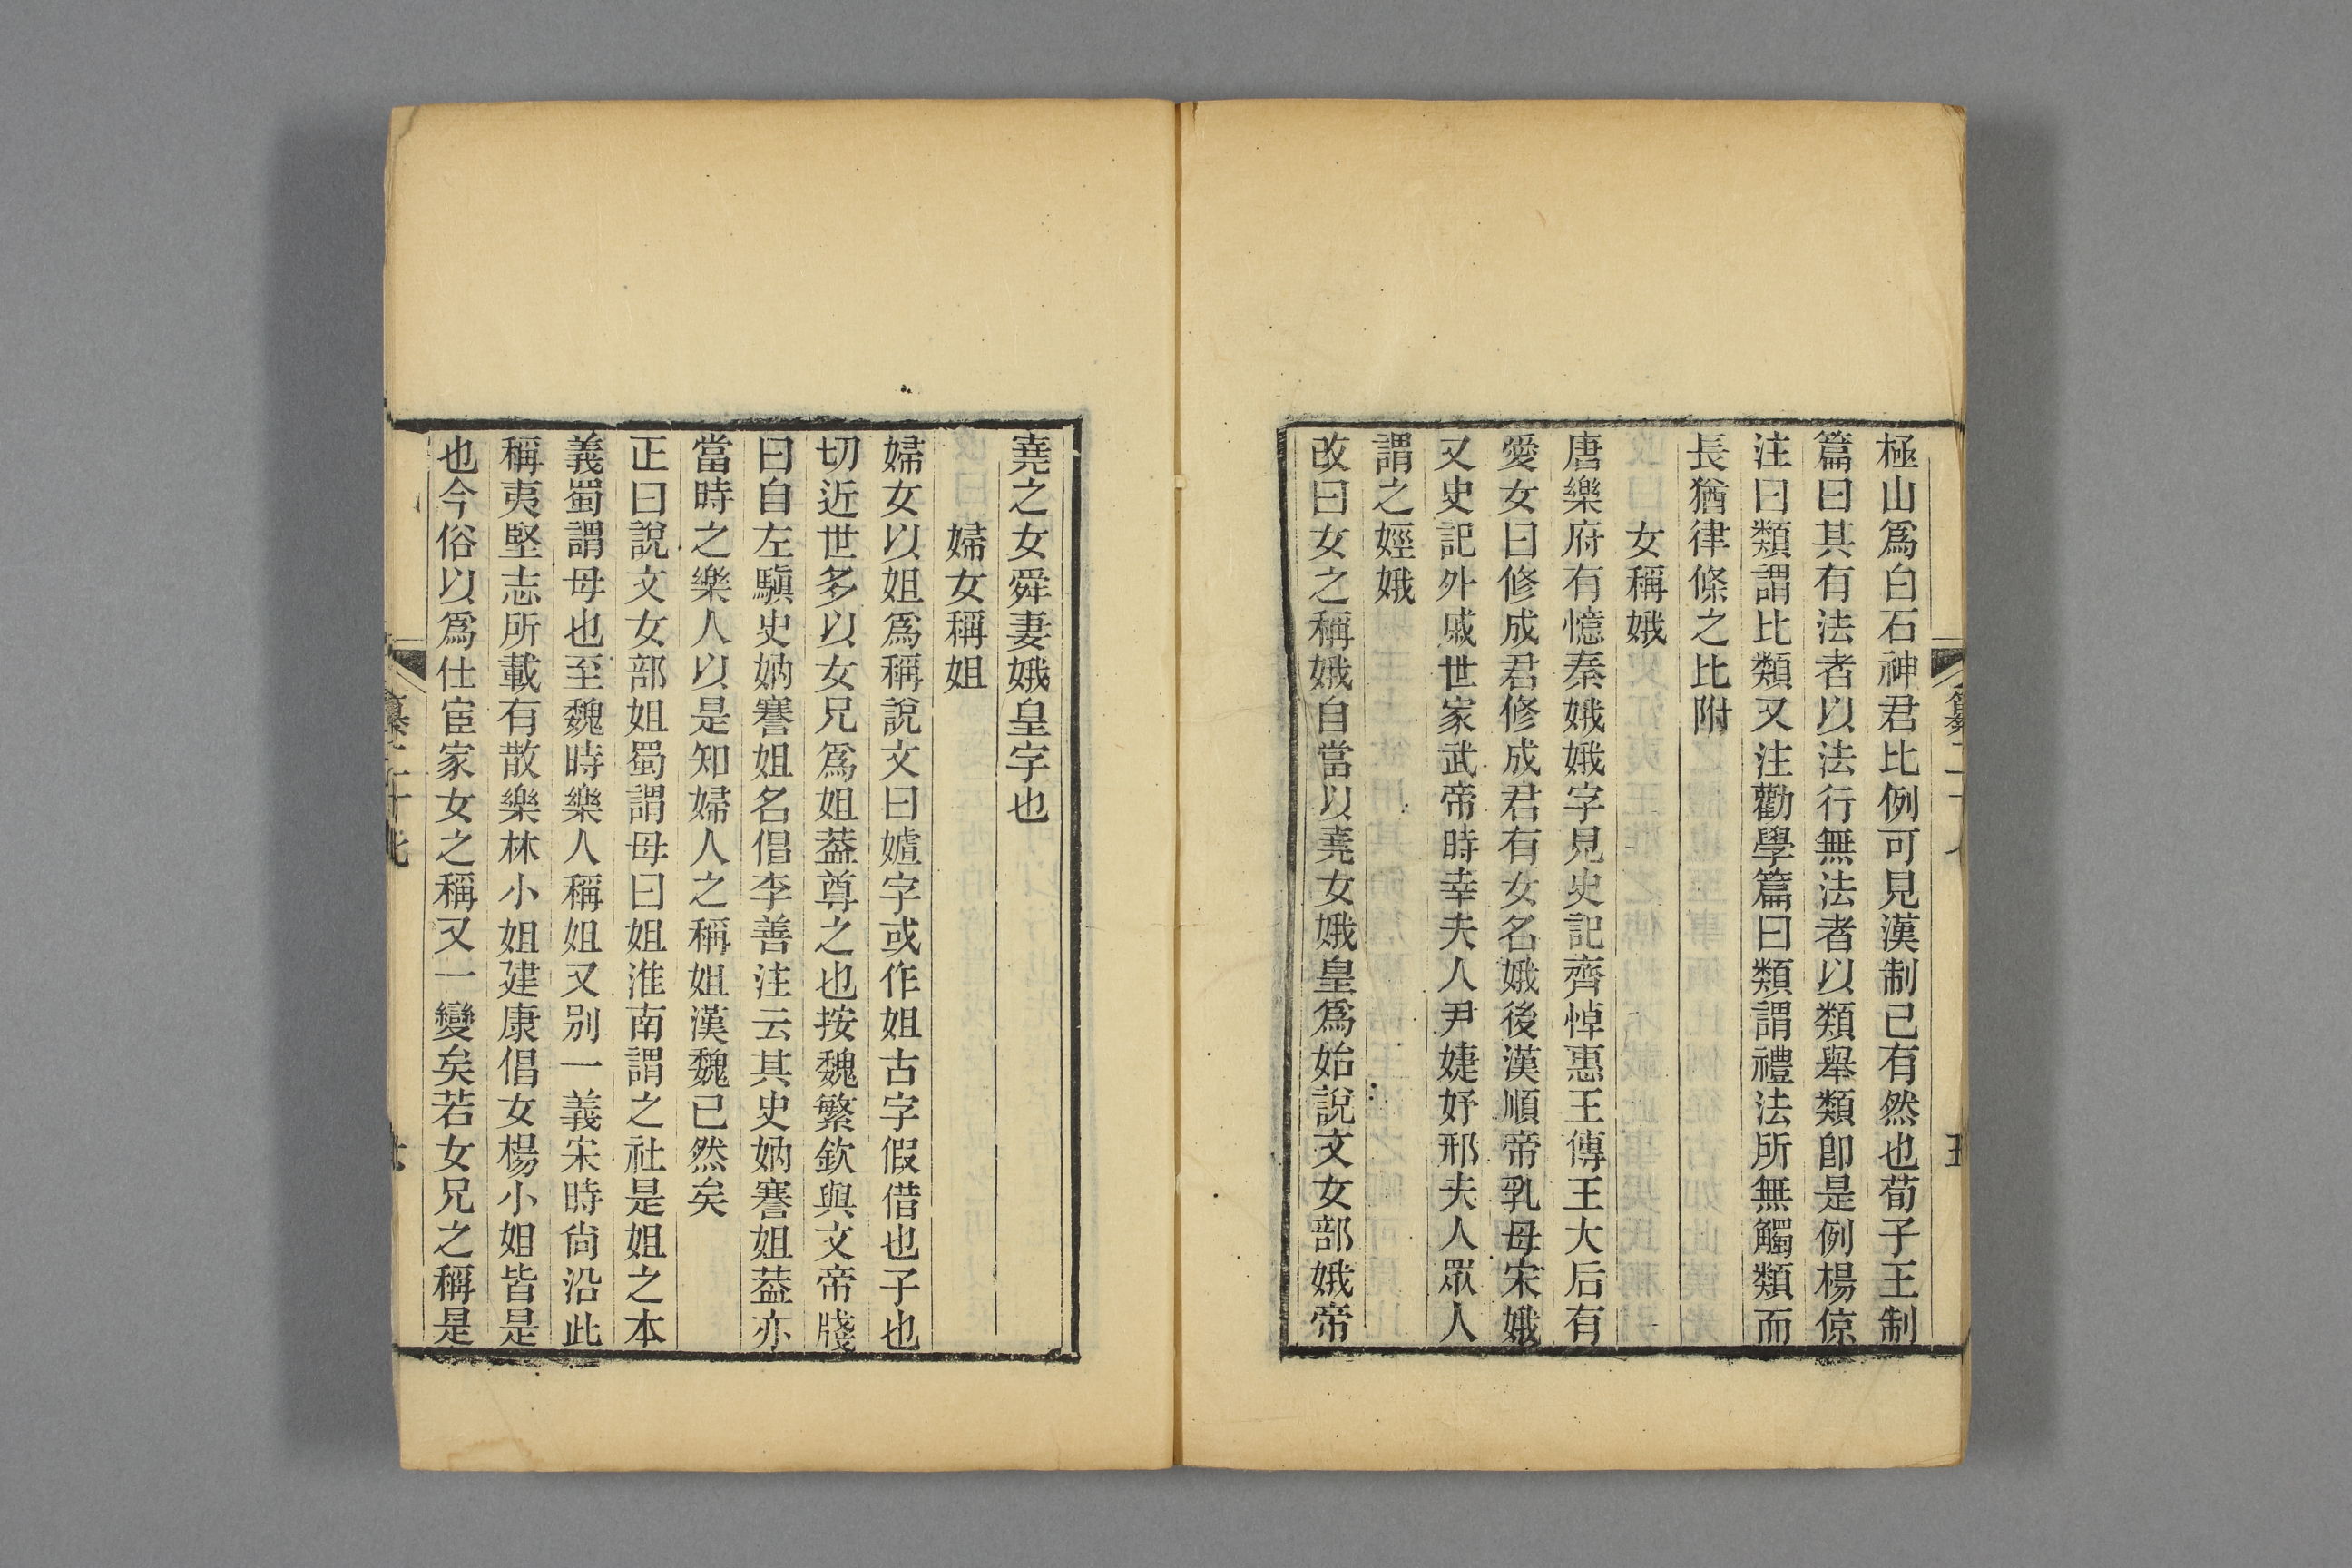 極山爲白石神君比例可見漢制已有然也荀子王制
篇曰其有法者以法行無法者以類舉類卽是例楊倞
注曰類謂比類又注勸學篇曰類謂禮法所無觸類而
長猶律條之比附
女稱娥
唐樂府有憶秦娥娥字見史記齊悼惠王傳王大后有
愛女曰修成君修成君有女名娥後漢順帝乳母宋娥
又史記外戚世家武帝時幸夫人尹婕妤邢夫人眾人
謂之娙娥
改曰女之稱娥自當以堯女娥皇爲始說文女部娥帝
堯之女舜妻娥皇字也
婦女稱姐
婦女以姐爲稱說文曰媎字或作姐古字假借也子也
切近世多以女兄爲姐葢尊之也按魏繁欽與文帝牋
曰自左騏史妠謇姐名倡李善注云其史妠謇姐葢亦
當時之樂人以是知婦人之稱姐漢魏已然矣
正曰說文女部姐蜀謂母曰姐淮南謂之社是姐之本
義蜀謂母也至魏時樂人稱姐又别一義宋時尙沿此
稱夷堅志所載有散樂林小姐建康倡女楊小姐皆是
也今俗以爲仕宦家女之稱又一變矣若女兄之稱是